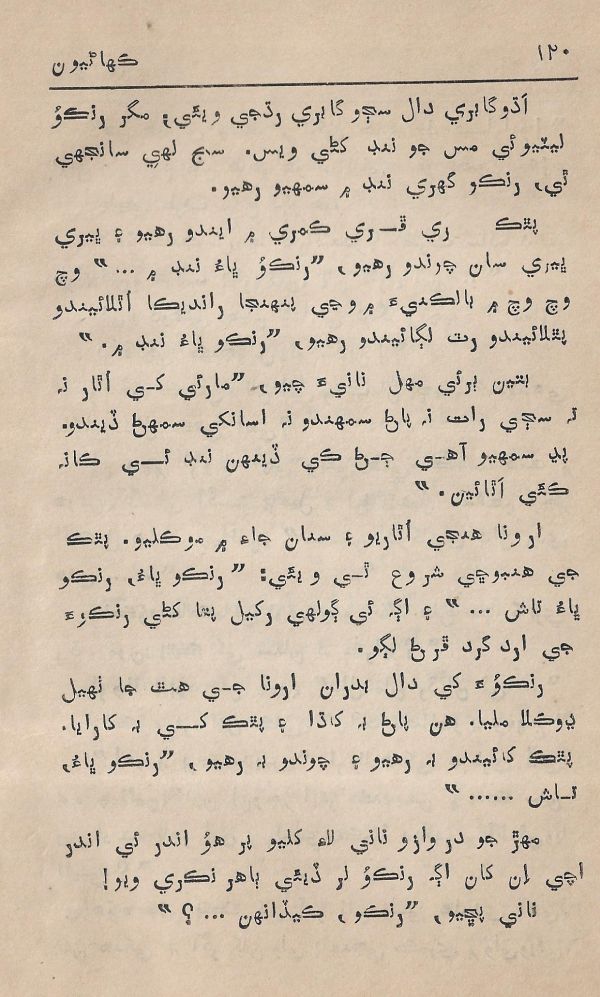 ١٢٠
ڪهاڻيون
اَڌو گابري دال سڄو گابري رڌجي ويئي، مگر رنڪوُ
ليٽيو ئي مس جو ننڊ کڻي ويس. سج لهي سانجهي
ٿي، رنڪو گهري ننڊ ۾ سمهيو رهيو.
پٽڪ ري ڦري ڪمري ۾ ايندو رهيو ۽ ڀيري
ڀيري سان چوندو رهيو، ”رنڪوُ ڀاءُ ننڊ ۾ ...“ وچ
وچ وچ ۾ بالڪنيءَ ۾ وڃي پنهنجا رانديڪا اُٿلائيندو
پٿلائيندو رٽ لڳائيندو رهيو، ”رنڪو ڀاءُ ننڊ ۾.“
بتين ٻرئي مهل نانيءَ چيو، ”مارئي کي اُٿار نہ
تہ سڄي رات نہ پاڻ سمهندو نہ اسانکي سمهڻ ڏيندو.
پڊ سمهيو آهي ڄڻ کي ڏينهن ننڊ ئي کانہ
ڪئي اٿائين.“
ارونا هنجي اُٿاريو ۽ سنان جاءِ ۾ موڪليو. پٽڪ
جي هنبوڇي شروع ٿي ويئي: ”رنڪو ڀاءُ، رنڪو
ڀاءُ تاش ...“ ۽ اڳہ ئي ڳولهي رکيل پتا کڻي رنڪوءَ
جي ارد گرد ڦرڻ لڳو.
رنڪوُءَ کي دال بدران ارونا جي هٿ جا ٺهيل
ڍوڪلا مليا. هن پاڻ بہ کاڌا ۽ پٽڪ کي بہ کارايا.
پٽڪ کائيندو بہ رهيو ۽ چوندو بہ رهيو، ”رنڪو ڀاءُ،
تاش ......“
مهڙ جو دروازو ناني لاءِ کليو پر هوُ اندر ئي اندر
اچي اِن کان اڳہ رنڪوُ لر ڏيئي ٻاهر نڪري ويو!
ناني پڇيو، ”رنڪو، ڪيڏانهن ...؟“